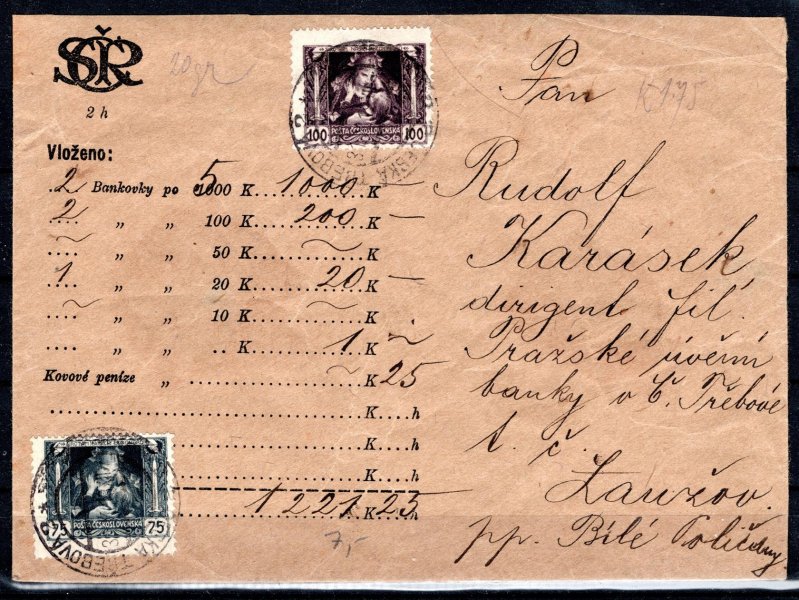 SČR
20 gr
K 1.75
2 h
Vloženo:
..2.. Bankovky po 5000 K....1000....K —
..2.. „ „ 100 K....200....K —
..~.. „ „ 50 K....~....K
..1.. „ „ 20 K....20....K —
..~.. „ „ 10 K....~....K
.... „ „ ..K....1....K ~
Kovové peníze „ ....~....K 25
....K....h
....K....h
....K....h
1221 K 25 h
7,-
POŠTA ČESKOSLOVENSKA
100 100
ČESKÁ TŘEBOVÁ 2
POŠTA ČESKOSLOVENSKA
75 75
ČESKÁ TŘEBOVÁ 2
Pan
Rudolf
Karásek,
dirigent fil.
Pražské úvěrní
banky v Č. Třebové
t. č.
Laužov.
pp. Bílé Poličany